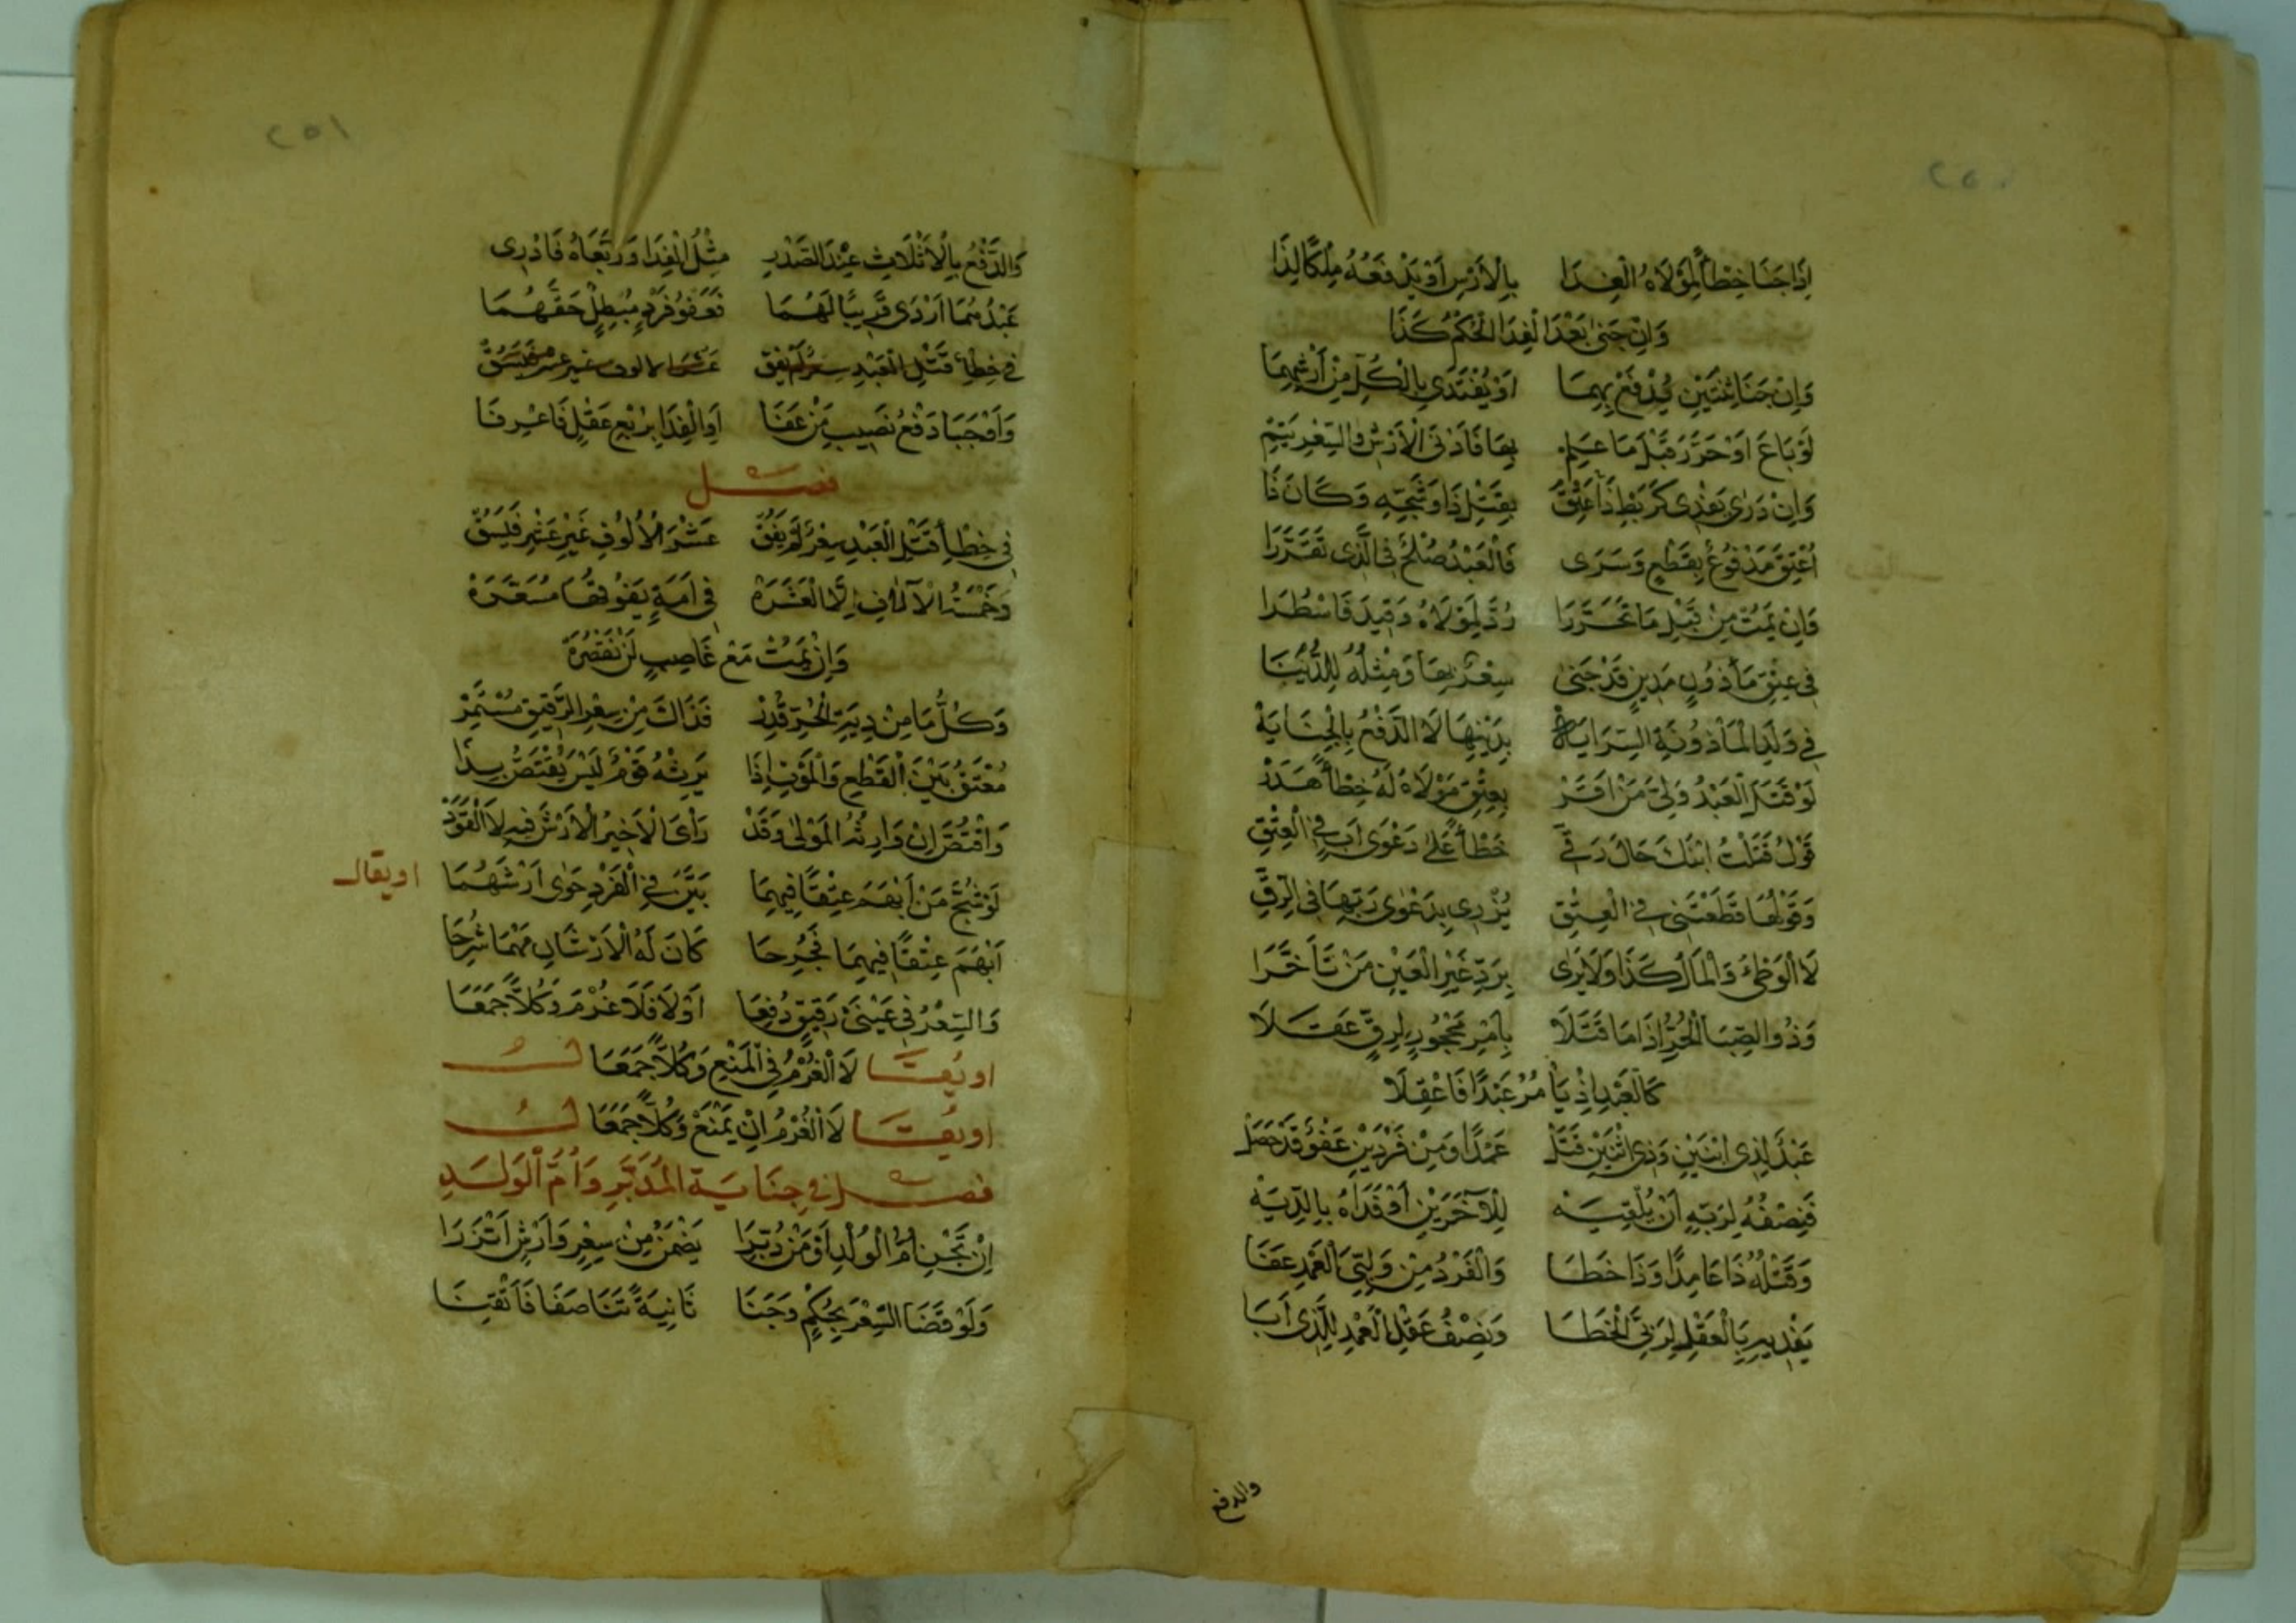 ٢٥٠
إِذَا جَنَا خِطْأً لِمَوْلَاهُ الْفِدَا بِالْأَرْشِ أَوْ يَدْفَعُهُ مِلْكًا لِذَا
وَإِنْ جَنَى بَعْدَ الْفِدَا الْحُكْمُ كَذَا
وَإِنْ جَنَا ثِنْتَيْنِ يُدْفَعْ بِهِمَا أَوْ يُفْتَدَى بِالْكُلِّ مِنْ أَرْشِهِمَا
لَوْ بَاعَ أَوْ حَرَّرَ قَبْلَ مَا عَلِمْ بِهَا فَأَدْنَى الْأَرْشِ وَالسِّعْرِ يَتِمْ
وَإِنْ دَرَى يَفْدِي كَرَبْطِ ذَا عِتْقَ بِقَتْلِ ذَا وَشَجِّهِ وَكَانَ ذَا
أُعْتِقَ مَدْفُوعٌ بِقَطْعٍ وَسَرَى فَالْعَبْدُ صُلْحٌ فِي الَّذِي تَقَرَّرَا
وَإِنْ يَمُتْ مِنْ قَبْلِ مَا تَحَرَّرَا رُدَّ لِمَوْلَاهُ وَقِيدَ فَاسْطُرَا
فِي عِتْقِ مَأْذُونٍ مَدِينٍ قَدْ جَنَى سِعْرٌ بِهَا وَمِثْلُهُ لِلدُّيَّنَا
فِي وَلَدِ الْمَأْذُونَةِ السِّرَايَةْ بِدَيْنِهَا لَا الدَّفْعُ بِالْجِنَايَةْ
لَوْ قَتَلَ الْعَبْدُ وَلِيَّ مَنْ أَقَرْ بِعِتْقِ مَوْلَاهُ لَهُ خِطْأً هَدَرْ
قَوْلُ قَتَلْتُ ابْنَكَ حَالَ رَقِّي خَطْأً عَلَى دَعْوَى أَبٍ فِي الْعِتْقِ
وَقَوْلُهَا قَطَعْتَنِي فِي الْعِتْقِ يُزْرِي بِدَعْوَى رَبِّهَا فِي الرِّقِّ
لَا الْوَطْئُ وَالْمَالُ كَذَا وَلَا يَرَى بِرَدِّ غَيْرِ الْعَيْنِ مَنْ تَأَخَّرَا
وَذُو الصِّبَا الْحُرُّ إِذَا مَا قَتَلَا بِأَمْرِ مَحْجُورٍ لِرِقٍّ عَقَلَا
كَالْعَبْدِ إِذْ يَأْمُرُ عَبْدًا فَاعْقِلَا
عَبْدٌ لِذِي اثْنَيْنِ وَذِي اثْنَيْنِ قَتَلْ عَمْدًا وَمِنْ فَرْدَيْنِ عَفْوٌ قَدْ حَصَلْ
فَنِصْفُهُ لِرَبِّهِ أَنْ يُلْقِيَهْ لِلْآخَرَيْنِ أَوْ فَدَاهُ بِالدِّيَهْ
وَقَتْلُهُ ذَا عَامِدًا وَذَا خَطَا وَالْفَرْدُ مِنْ وَلِيَّيِ الْعَمْدِ عَفَا
يَفْدِيهِ بِالْعَقْلِ لِرَبَّيِ الْخَطَا وَنِصْفُ عَقْلِ الْعَمْدِ لِلَّذِي أَبَا
والدفع
٢٥١
وَالدَّفْعُ بِالْأَثْلَاثِ عِنْدَ الصَّدْرِ مِثْلُ الْفِدَا وَرَبَّعَاهُ فَادْرِي
عَبْدُهُمَا أَرْدَى قَرِيبًا لَهُمَا فَعَفْوُ فَرْدٍ مُبْطِلٌ حَقَّهُمَا
فِي خِطْأِ قَتْلِ الْعَبْدِ سِعْرٌ لَمْ يَفُقْ غَيْرَ عَشْرٍ فَيُسَقْ
وَأَوْجَبَا دَفْعَ نَصِيبِ مَنْ عَفَا أَوِ الْفِدَا بِرُبْعِ عَقْلٍ فَاعْرِفَا
فصل
فِي خِطْأِ قَتْلِ الْعَبْدِ سِعْرٌ لَمْ يَفُقْ عَشْرَ الْأُلُوفِ غَيْرَ عَشْرٍ فَيُسَقْ
وَخَمْسَةُ الْآلَافِ إِلَّا الْعَشَرَةْ فِي أَمَةٍ يَفُوقُهَا مُسَعَّرَةْ
وَإِنْ يَمُتْ مَعْ غَاصِبٍ لَنْ نَقْصُرَهْ
وَكُلُّ مَا مِنْ دِيَةِ الْحُرِّ قُدِرْ فَذَاكَ مِنْ سِعْرِ الرَّقِيقِ مُسْتَمِرْ
مُعْتَقُ بَيْنَ الْقَطْعِ وَالْمَوْتِ إِذَا يَرِثُهُ قَوْمٌ لَيْسَ يُقْتَصُّ بِذَا
وَاقْتُصَّ إِنْ وَارِثُهُ الْمَوْلَى وَقَدْ رَأَى الْأَخِيرُ الْأَرْشَ فِيهِ لَا الْقَوَدْ
لَوْ شُجَّ مَنْ أَبْهَمَ عِتْقًا فِيهِمَا بَيَّنَ فِي الْفَرْدِ حَوَى أَرْشَهُمَا
او يقال
أَبْهَمَ عِتْقًا فِيهِمَا فَجُرِحَا كَانَ لَهُ الْأَرْشَانِ مَهْمَا شُرِحَا
وَالسِّعْرُ فِي عَيْنَيْ رَقِيقٍ دُفِعَا أَوْ لَا فَلَا غُرْمَ وَكُلًّا جَمَعَا
او يقال لَا الْغُرْمُ فِي الْمَنْعِ وَكُلًّا جَمَعَا
او يقال لَا الْغُرْمُ إِنْ يَمْنَعْ وَكُلًّا جَمَعَا
فصل في جِنَايَة الْمُدَبَّرِ وَأُمِّ الْوَلَدِ
إِنْ تَجْنِ أُمُّ الْوُلْدِ أَوْ مَنْ دُبِّرَا يَضْمَنْ مِنْ سِعْرٍ وَأَرْشٍ أَنْزَرَا
وَلَوْ قَضَا السِّعْرَ بِحُكْمٍ وَجَنَا ثَانِيَةً تَنَاصَفَا فَأَتْقِنَا